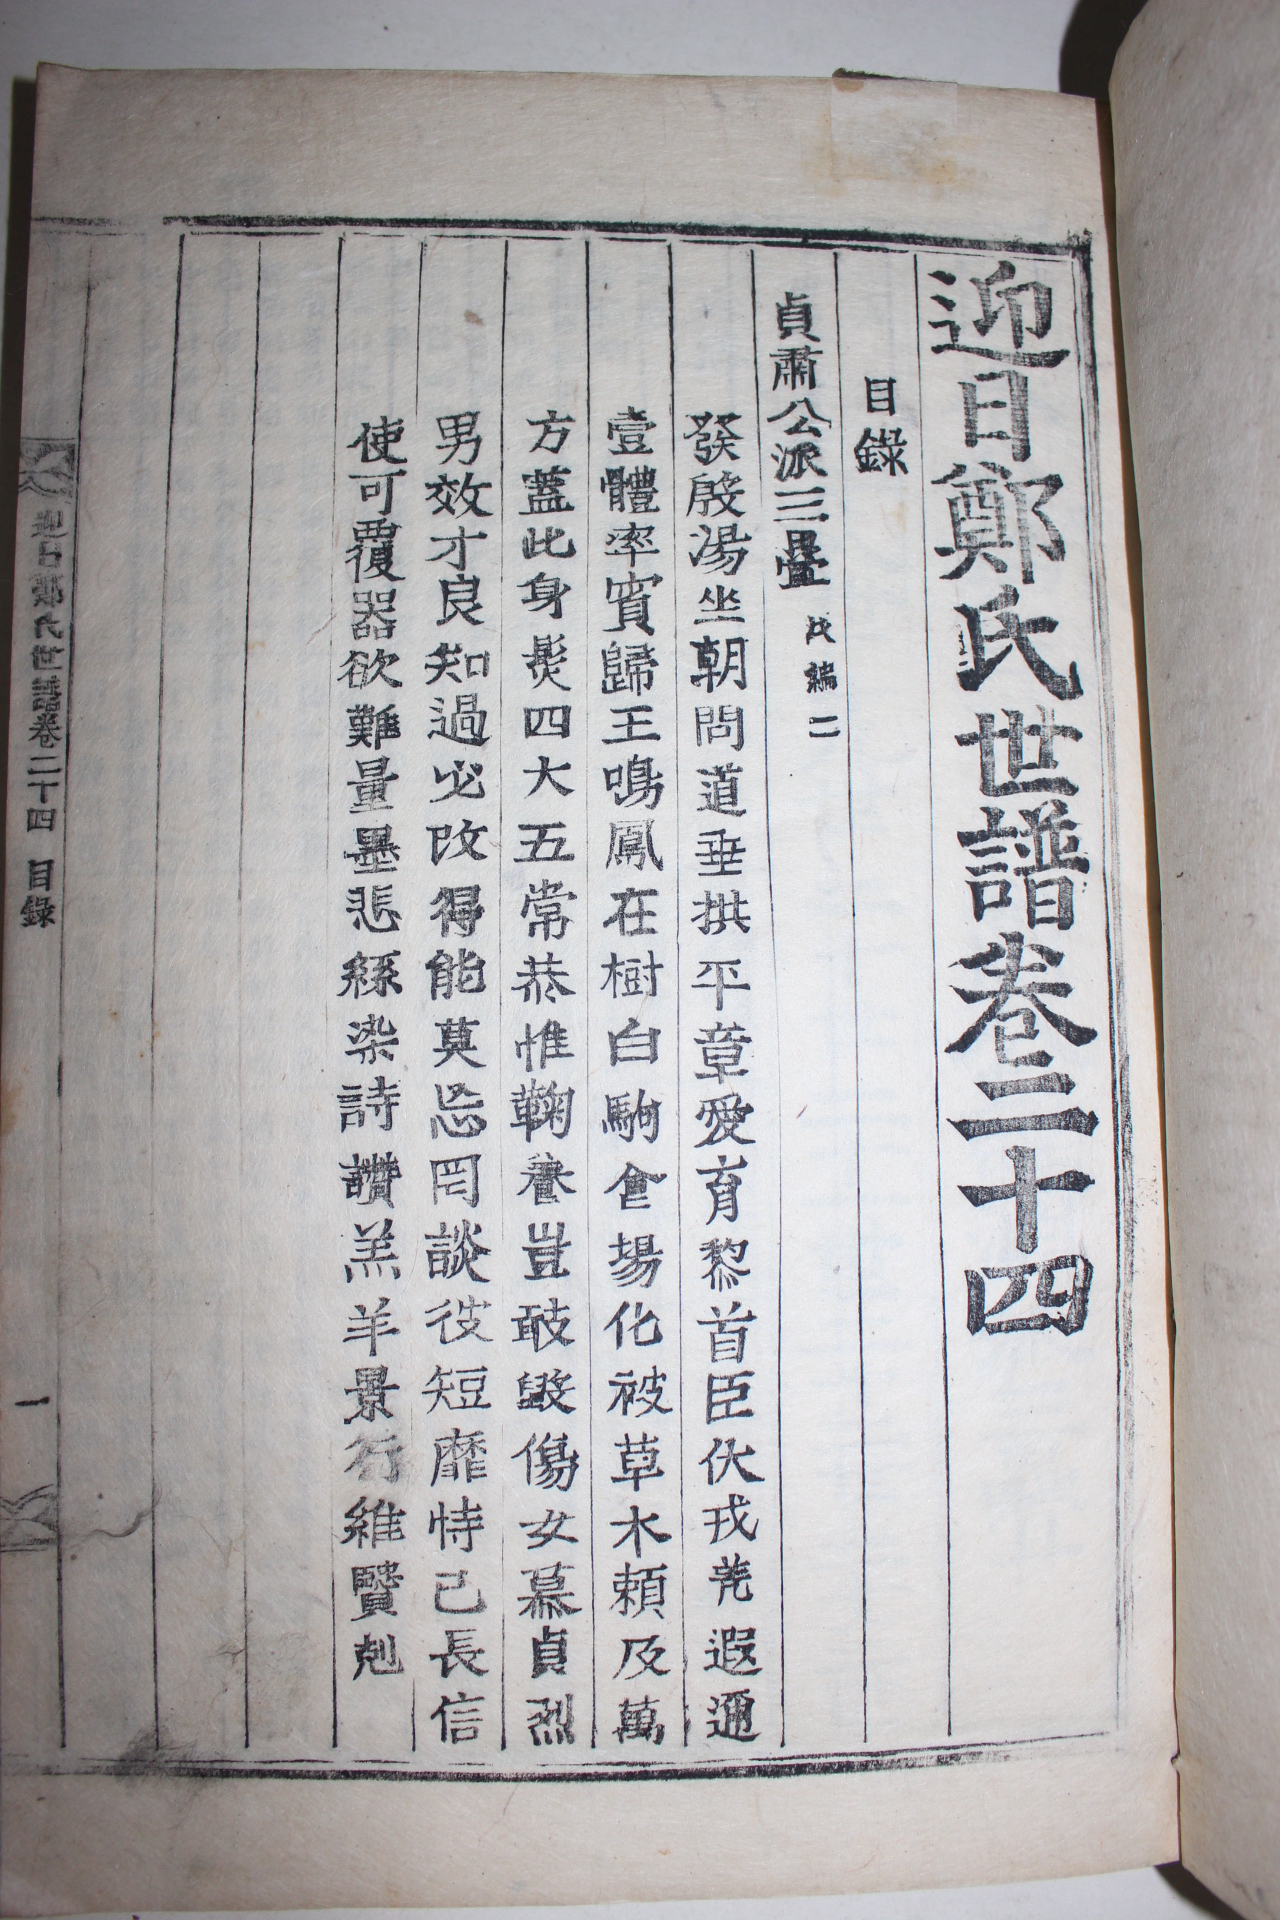 迎日鄭氏世譜卷二十四
目錄
貞肅公派三疊 戊編二
發殷湯坐朝問道垂拱平章愛育黎首臣伏戎羌遐邇
壹體率賓歸王鳴鳳在樹白駒食場化被草木賴及萬
方蓋此身髮四大五常恭惟鞠養豈敢毁傷女慕貞烈
男效才良知過必改得能莫忘罔談彼短靡恃己長信
使可覆器欲難量墨悲絲染詩讚羔羊景行維賢剋
迎日鄭氏世譜卷二十四 目錄 一